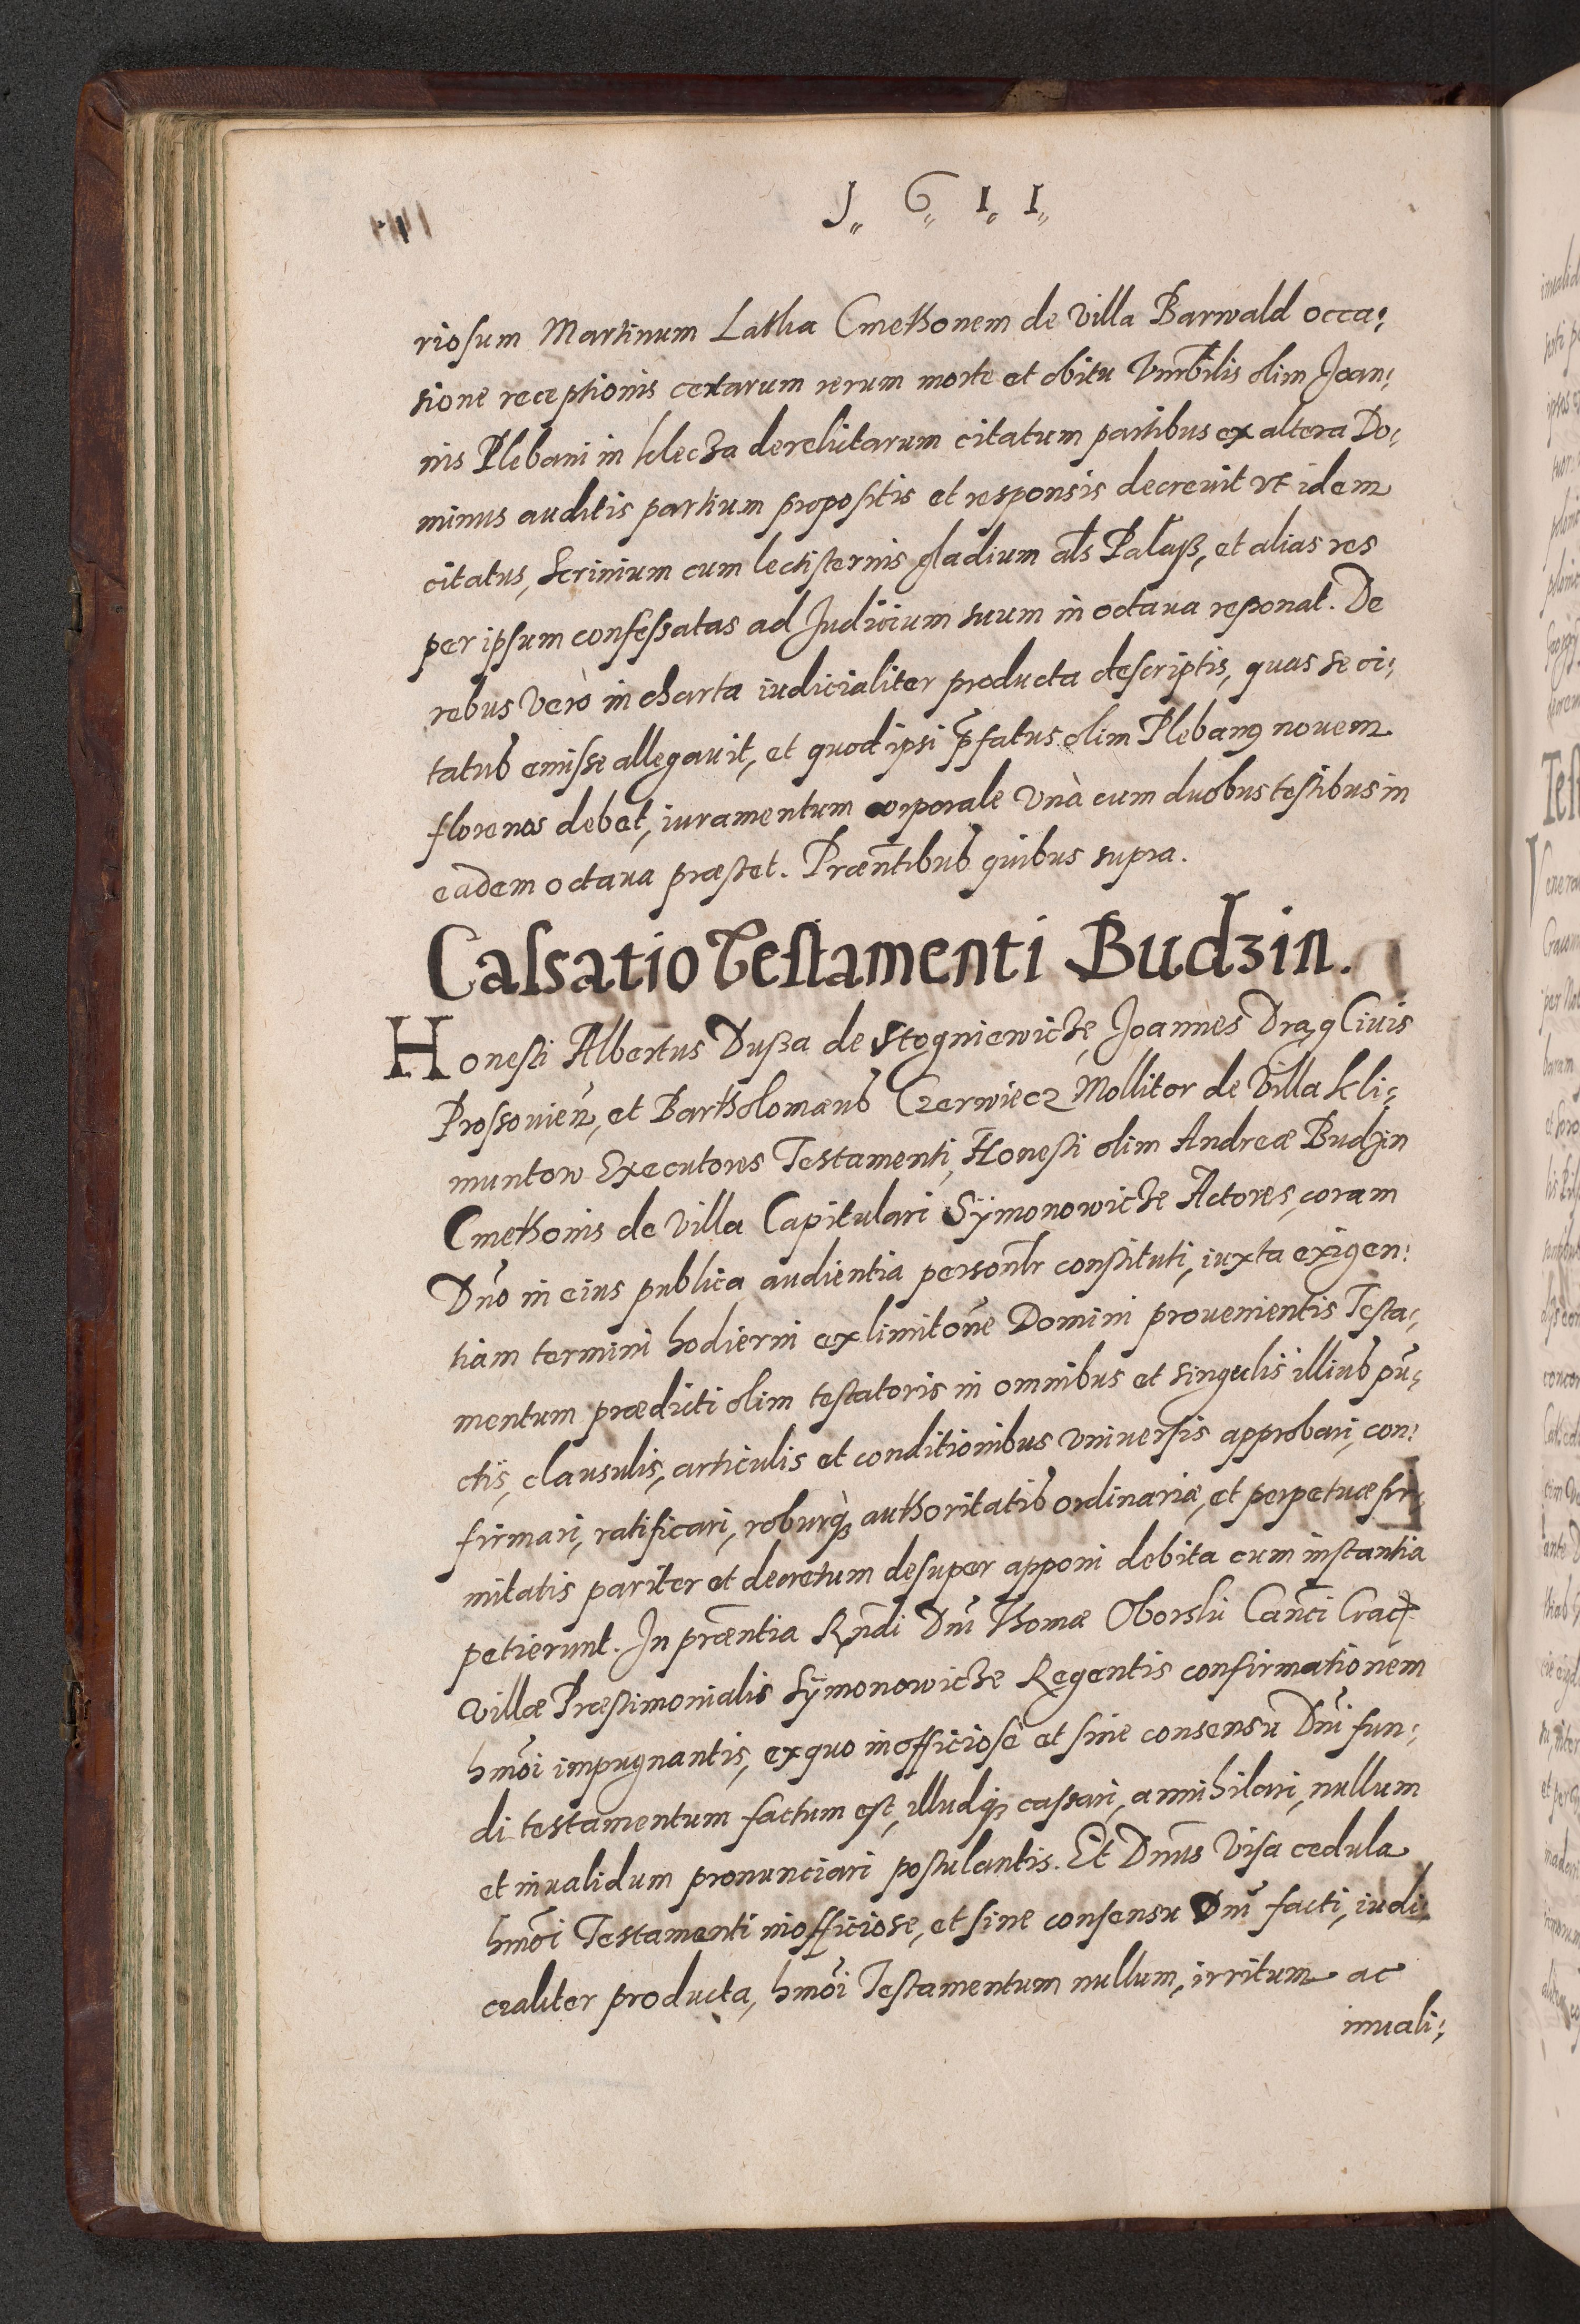 1 6 1 1
riosum Martinum Latha Cmethonem de villa Barwald occa:
sione receptionis certarum rerum morte et obitu Vnrbilis olim Joan:
nis Plebani in Klecza derelictarum citatum partibus ex altera Do:
minus auditis partium propositis et responsis decrevit vt idem
citatus, Scrinium cum lectisternis gladium als Palaß, et alias res
per ipsum confessatas ad Judicium suum in octaua reponat. De
rebus verò in charta iudicialiter producta descriptis, quas se ci:
tatus emisse allegauit, et quod ipsi p̃fatus olim Plebanus nouem
florenos debet, iuramentum corporale vnà cum duobus testibus in
eadem octaua præstet. Præñtibus quibus supra.
Cassatio Testamenti Budzin.
Honesti Albertus Dusza de Stogniewicze, Joannes Drąg Ciuis
Prossouieñ, et Bartholomæus Czerwiecz Mollitor de Villa Kli:
muntow Executores Testamenti, Honesti olim Andreæ Budzin
Cmethonis de villa Capitulari Sÿmonowicze Actores, coram
Dño in eius publica audientia personlr constituti, iuxta exigen:
tiam termini hodierni ex limitoñe Domini prouenientis Testa:
mentum prædicti olim testatoris in omnibus et singulis illius pũ:
ctis, clausulis, articulis et conditionibus vniuersis approbari, con:
firmari, ratificari, roburq́; authoritatis ordinariæ, et perpetuæ fir:
mitatis pariter et decretum desuper apponi debita cum instantia
petierunt. In præñtia Rñdi Dñi Thomæ Oborski Canci Crac
villæ Præstimonialis Sÿmonowicze Regentis confirmationem
hmõi impugnantis, ex quo inofficiosè et sine consensu Dñi fun:
di testamentum factum est, illudq; cassari, annihilari, nullum
et inualidum pronunciari postulantis. Et Dñus visa cedula
hmõi Testamenti inofficiose, et sine consensu Dñi facti, iudi:
cialiter producta, hmõi Testamentum nullum, irritum ac
inuali: